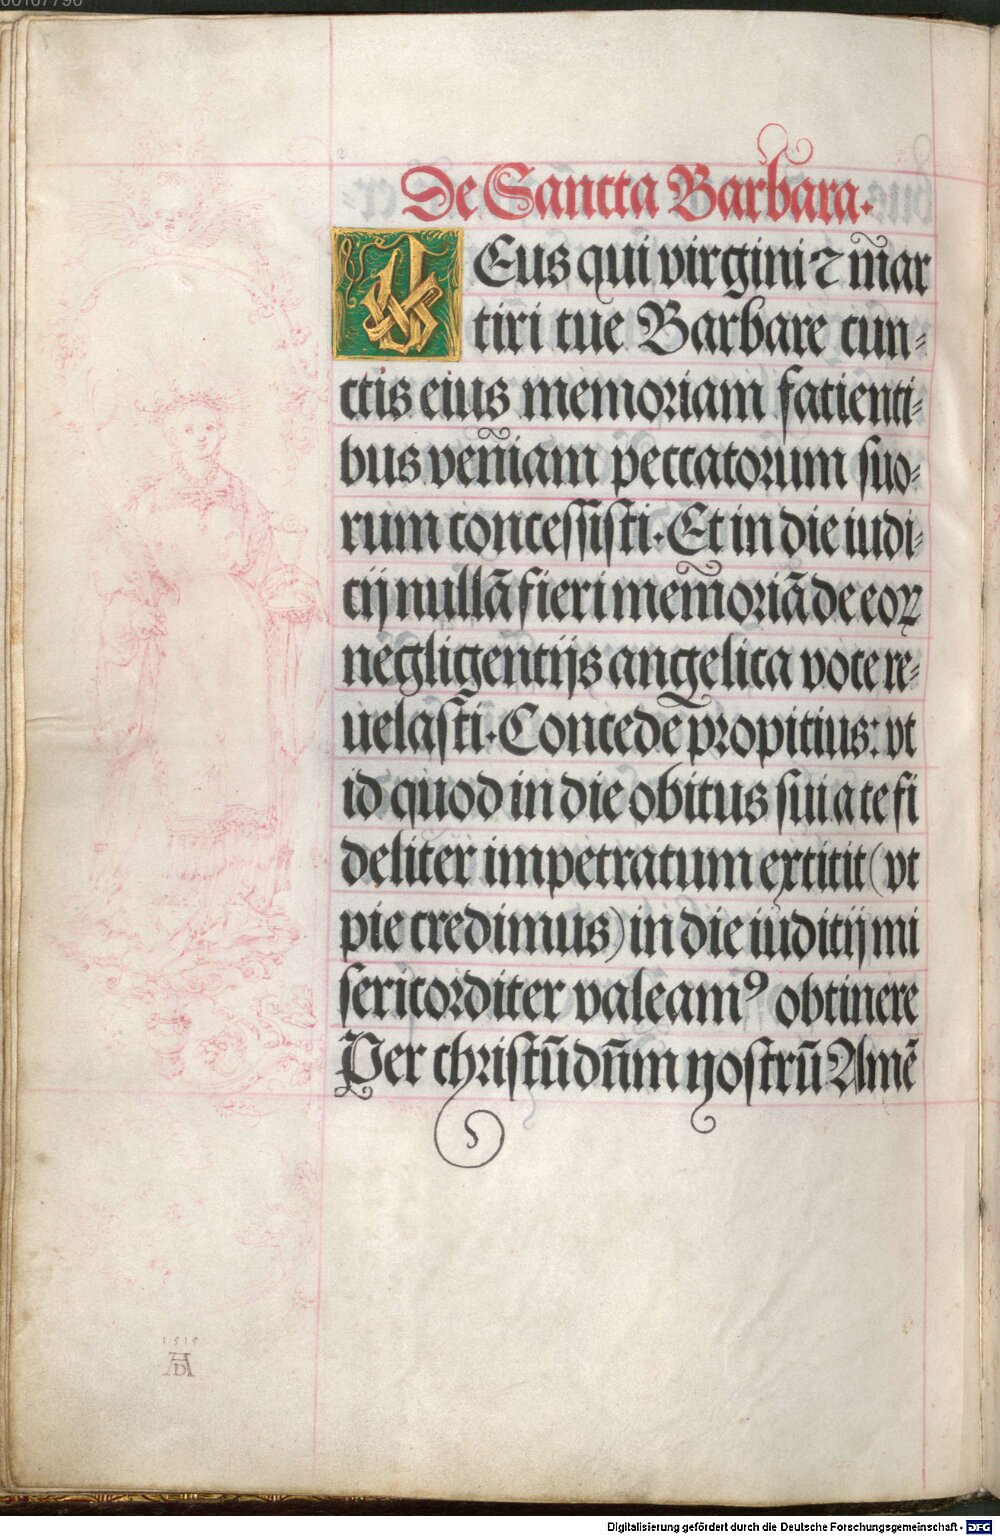 00107790
De Sancta Barbara.
DEus qui virgini ⁊ mar
tiri tue Barbare cun⸗
ctis eius memoriam facienti⸗
bus veniam peccatorum suo⸗
rum concessisti. Et in die iudi⸗
cij nullā fieri memoriā de eoꝝ
negligentijs angelica voce re⸗
uelasti. Concede propicius: vt
id quod in die obitus sui a te fi
deliter impetratum extitit (vt
pie credimus) in die iudicij mi
sericorditer valeamꝰ obtinere
Per christū dn̄m nostrū Amē
1515
AD
Digitalisierung gefördert durch die Deutsche Forschungsgemeinschaft - DFG